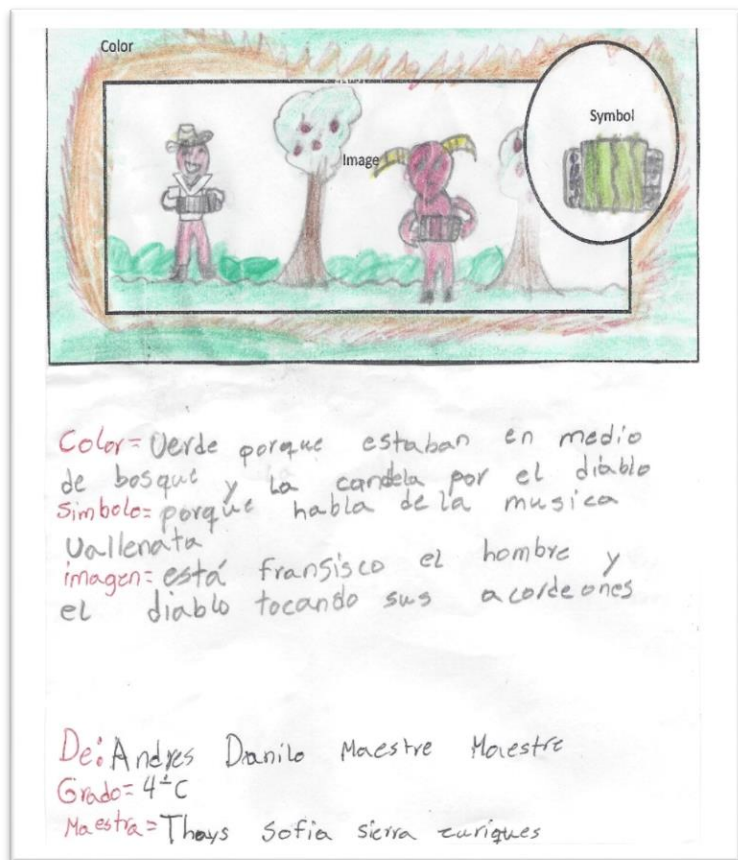 Color
Symbol
Image
Color= Verde porque estaban en medio
de bosque y la candela por el diablo
Simbolo= porque habla de la musica
Vallenata
imagen= está fransisco el hombre y
el diablo tocando sus acordeones
De: Andres Danilo Maestre Maestre
Grado= 4°C
Maestra= Thays Sofia sierra